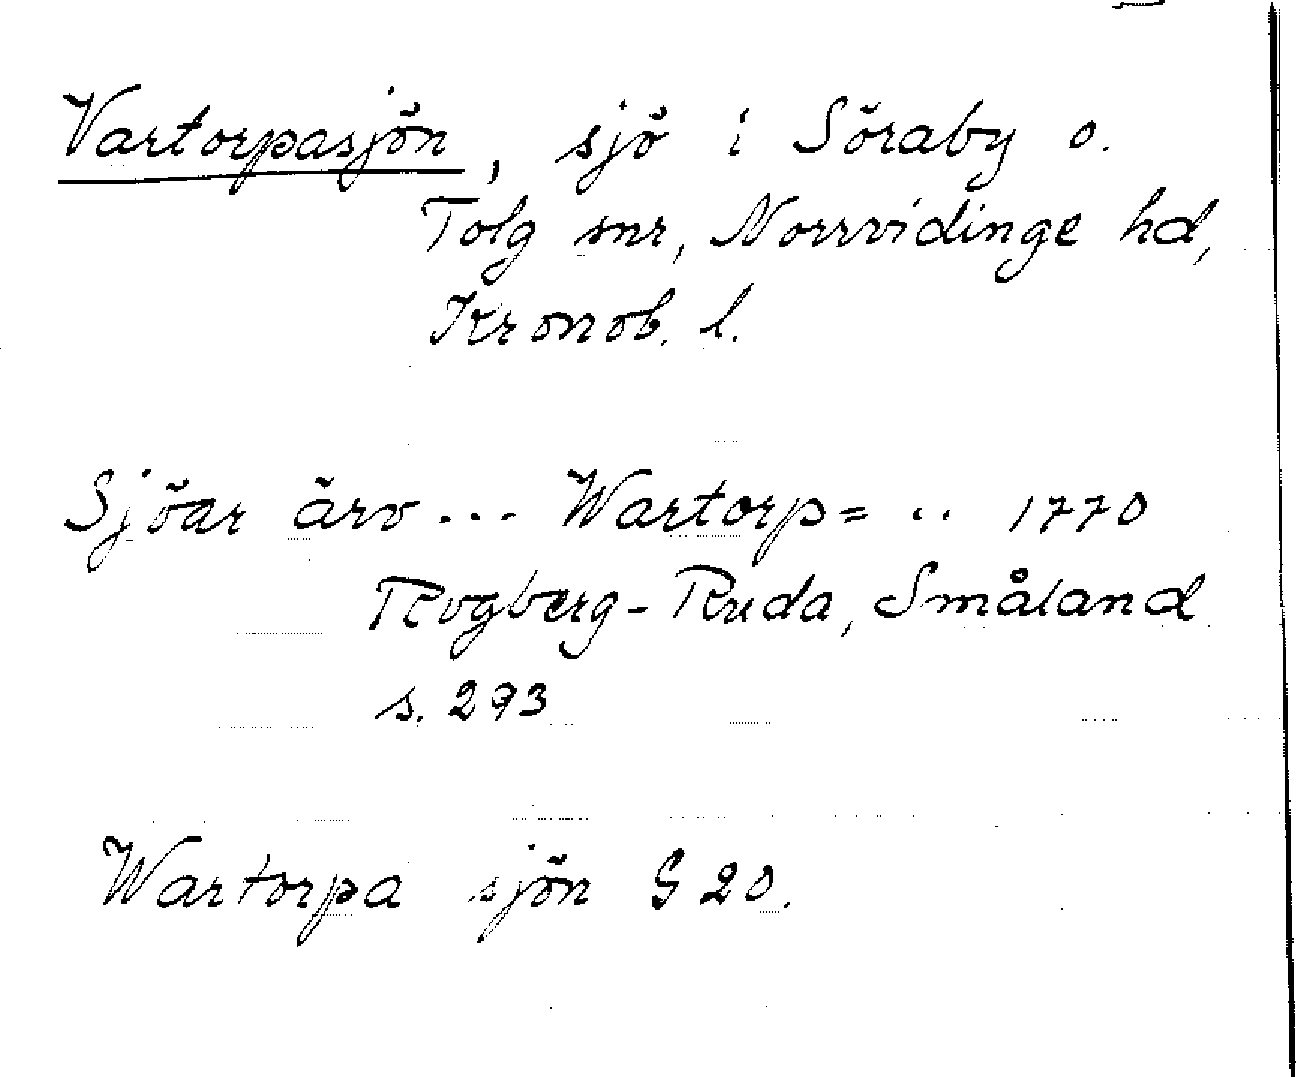 Vartorpasjön, sjö i Söraby o.
Tolg snr, Norrvidinge hd,
Kronob. l.
Sjöar ärv... Wartorp= .. 1770
Rogberg-Ruda, Småland
s. 293
Wartorpa sjön G 20.